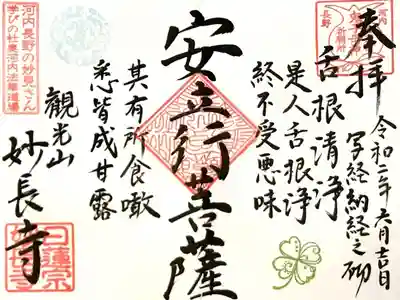 奉拝
令和二年六月吉日
写経納経之砌
舌根清浄
是人舌根浄
終不受悪味
安立行菩薩
其有所食噉
悉皆成甘露
観光山
妙長寺
河内長野の妙見さん
学びの社奥河内法華道場
日蓮宗
妙長寺